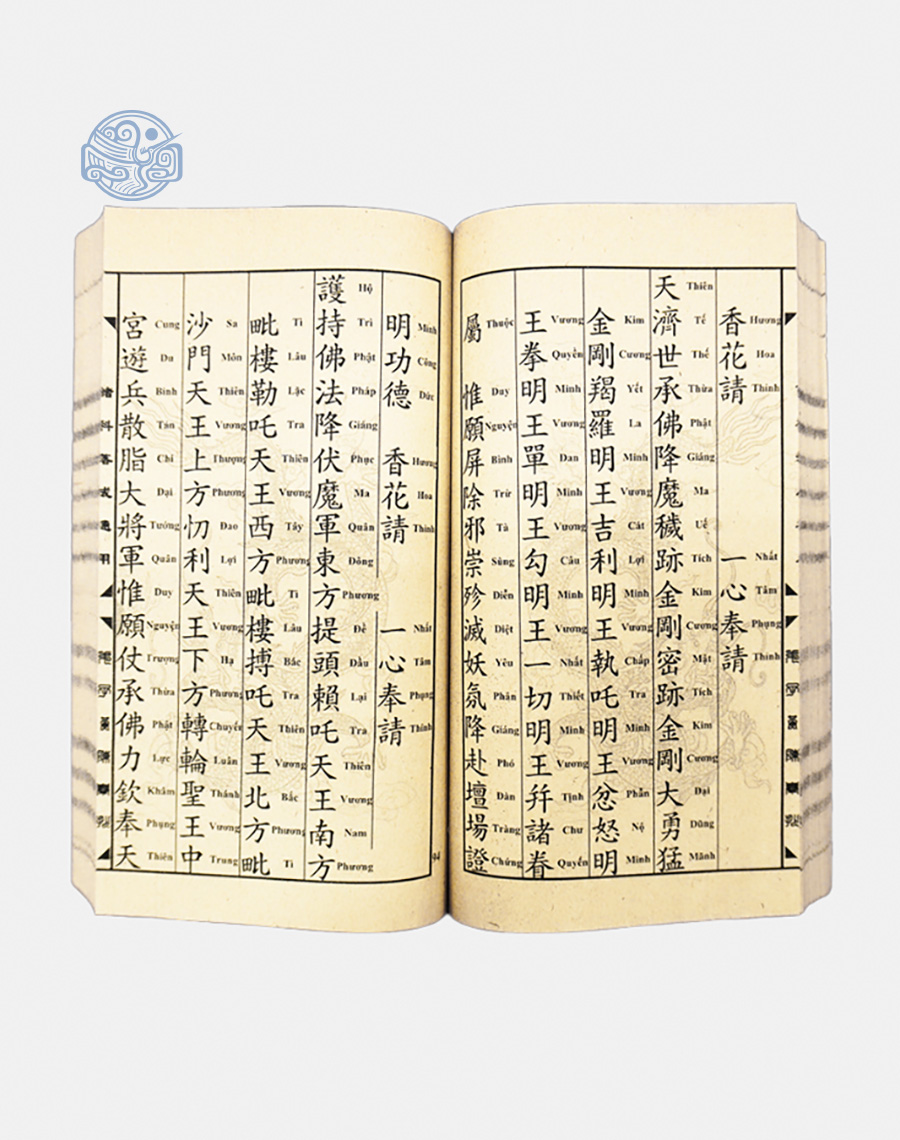 香花請 一心奉請
Hương Hoa Thỉnh Nhất Tâm Phụng Thỉnh
天濟世承佛降魔穢跡金剛密跡金剛大勇猛
Thiên Tế Thế Thừa Phật Giáng Ma Uế Tích Kim Cương Mật Tích Kim Cương Đại Dũng Mãnh
金剛羯羅明王吉利明王執吒明王忿怒明
Kim Cương Yết La Minh Vương Cát Lợi Minh Vương Chấp Tra Minh Vương Phẫn Nộ Minh
王拳明王單明王勾明王一切明王幷諸眷
Vương Quyền Minh Vương Đan Minh Vương Câu Minh Vương Nhất Thiết Minh Vương Tịnh Chư Quyến
屬 惟願屏除邪崇殄滅妖氛降赴壇場證
Thuộc Duy Nguyện Bình Trừ Tà Sùng Diễn Diệt Yêu Phân Giáng Phó Đàn Tràng Chứng
明功德 香花請 一心奉請
Minh Công Đức Hương Hoa Thỉnh Nhất Tâm Phụng Thỉnh
護持佛法降伏魔軍東方提頭賴吒天王南方
Hộ Trì Phật Pháp Giáng Phục Ma Quân Đông Phương Đề Đầu Lại Tra Thiên Vương Nam Phương
毗樓勒吒天王西方毗樓搏吒天王北方毗
Tì Lâu Lặc Tra Thiên Vương Tây Phương Tì Lâu Bác Tra Thiên Vương Bắc Phương Tì
沙門天王上方忉利天王下方轉輪聖王中
Sa Môn Thiên Vương Thượng Phương Đao Lợi Thiên Vương Hạ Phương Chuyển Luân Thánh Vương Trung
宮遊兵散脂大將軍惟願仗承佛力欽奉天
Cung Du Binh Tán Chi Đại Tướng Quân Duy Nguyện Trượng Thừa Phật Lực Khâm Phụng Thiên